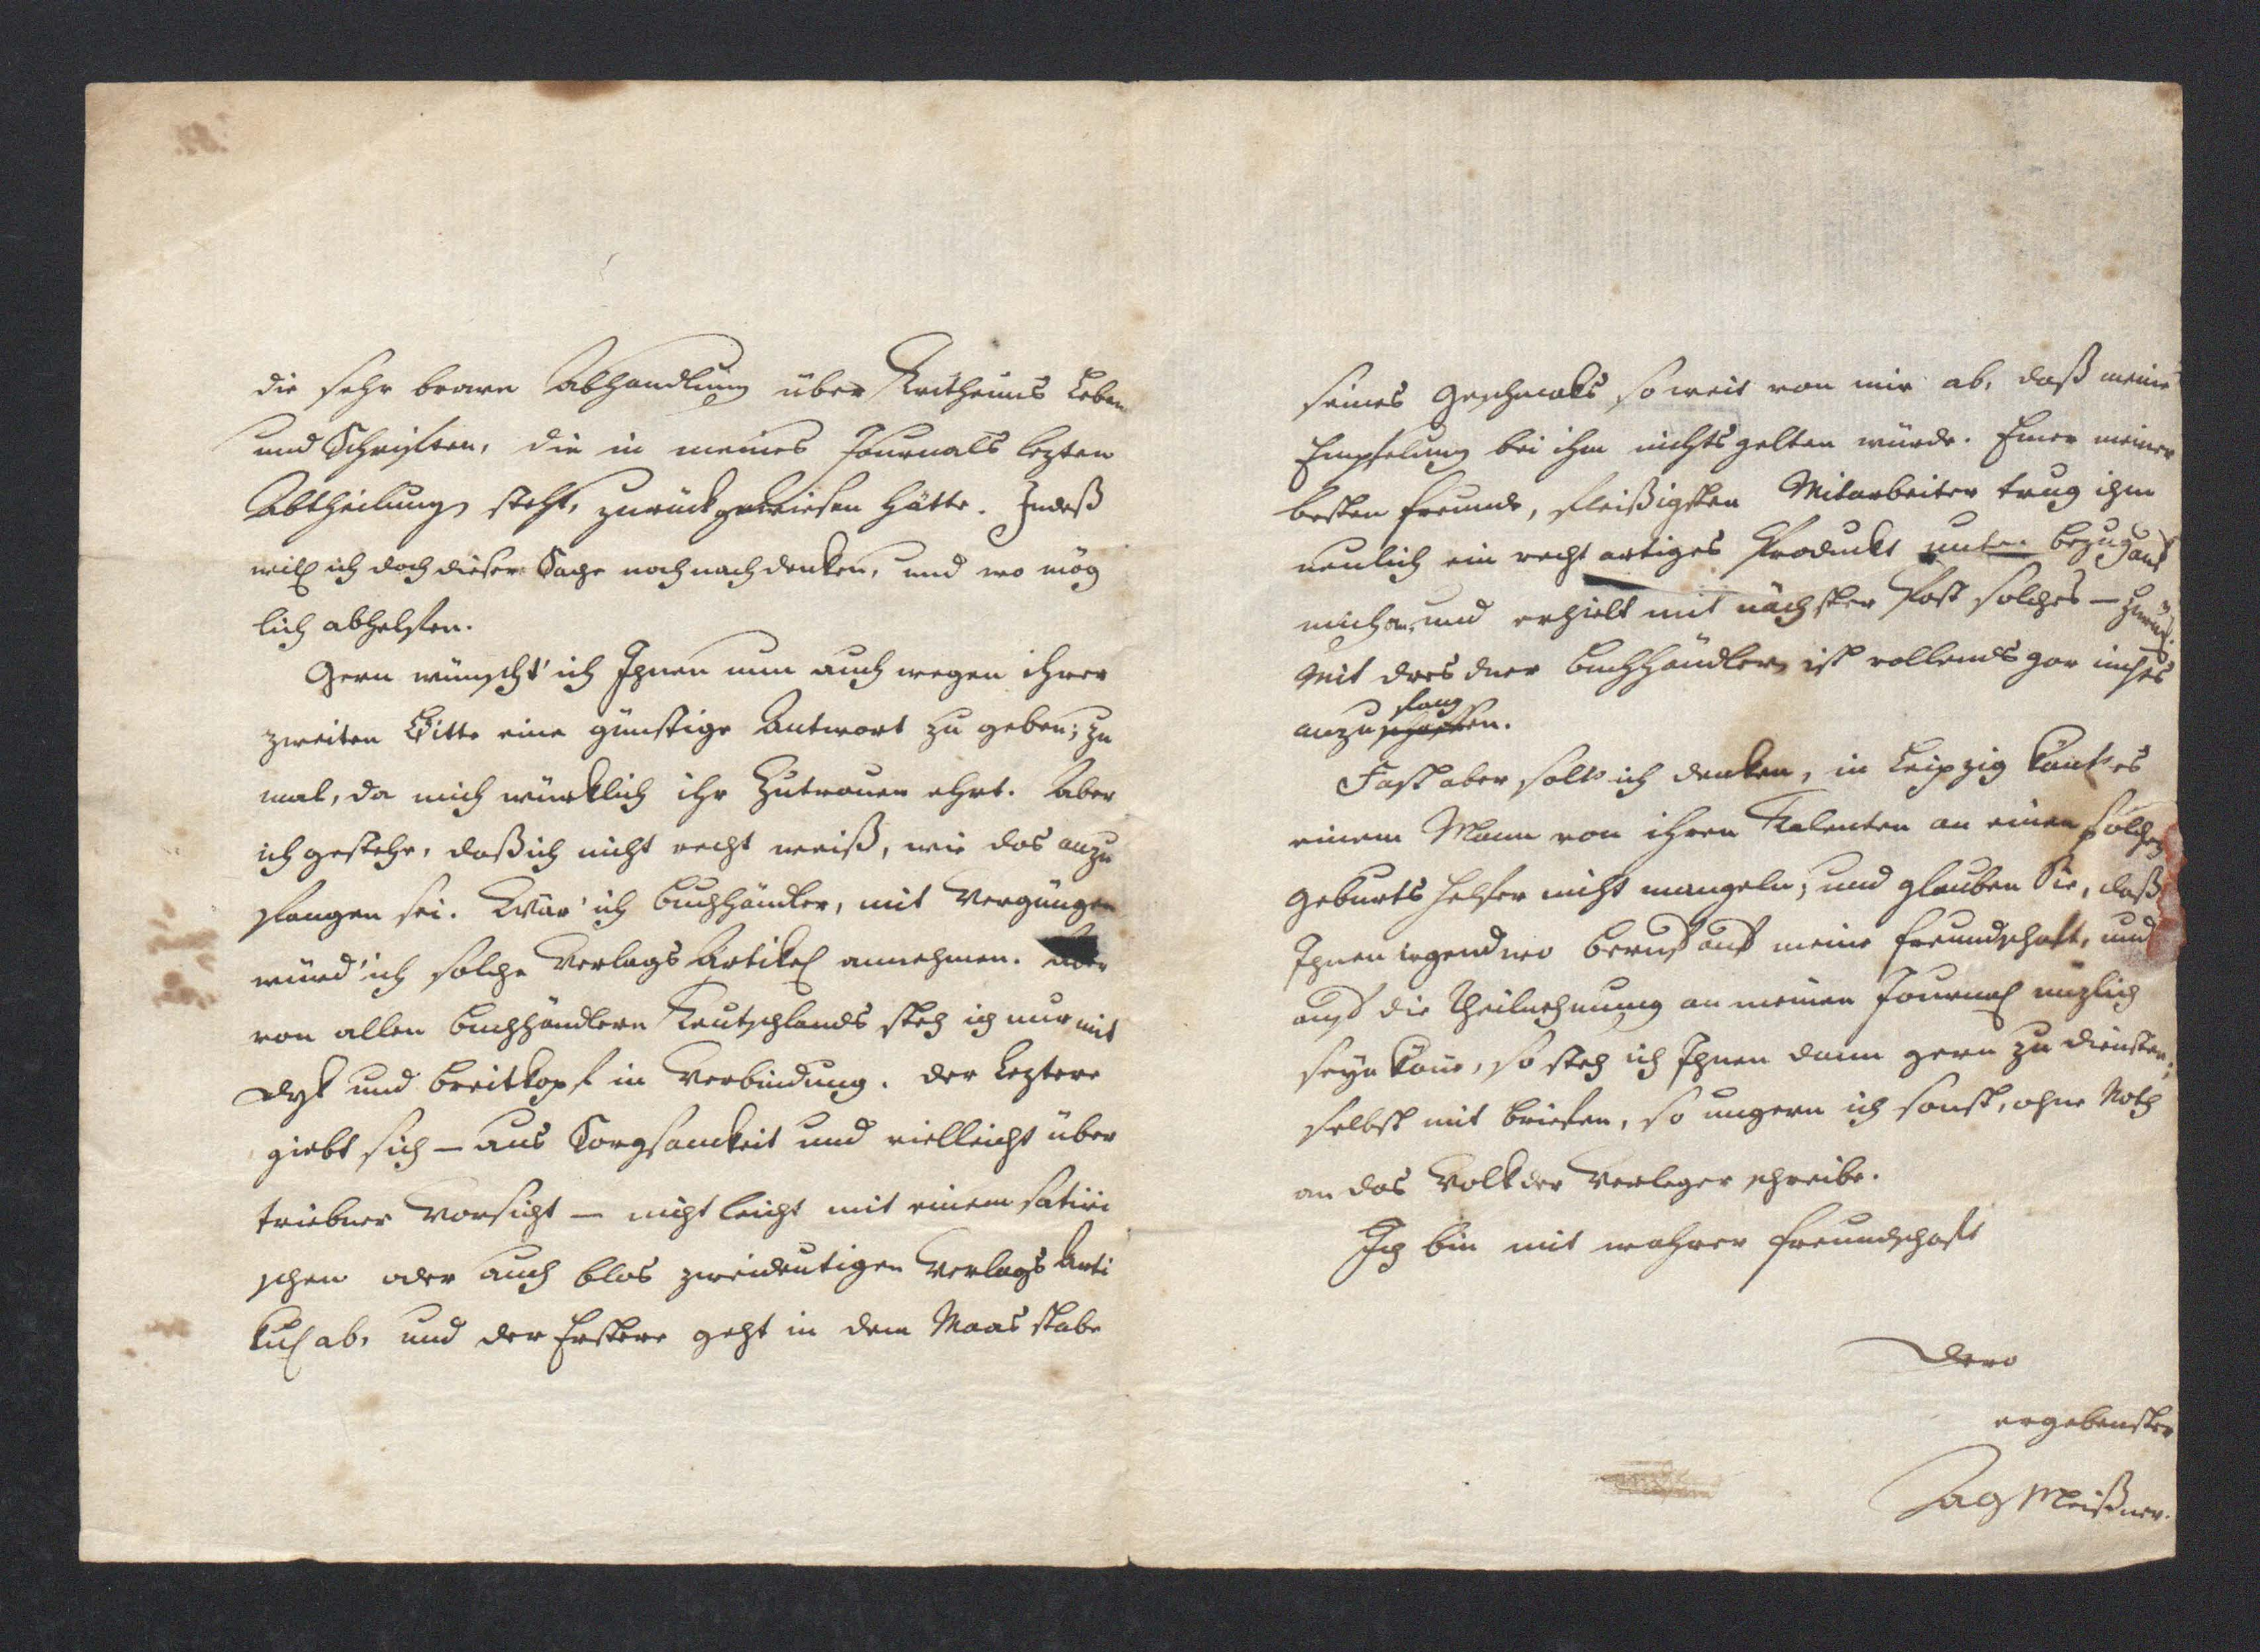 die sehr brave Abhandlung über Tritheims Leben
und Schriften, die in meines Journals lezten
Abtheilung steht, zurückgewiesen hätte. Indeß
will ich doch dieser Sache noch nachdenken, und wo mög
lich abhelfen.
Gern wünscht' ich Ihnen nun auch wegen ihrer
zweiten Bitte eine günstige Antwort zu geben; zu
mal, da mich würklich ihr Zutrauen ehrt. Aber
ich gestehe, daß ich nicht recht weiß, wie das anzu
fangen sei. Wär' ich Buchhändler, mit Vergnügen
würd' ich solche Verlags Artikel annehmen. Aber
von allen Buchhändlern Teutschlands steh ich nur mit
Dyk und Breitkopf in Verbindung. Der Leztere
giebt sich — aus Sorgsamkeit und vielleicht über
triebner Vorsicht — nicht leicht mit einem satiri
schen oder auch blos zweideutigen Verlags Arti
kel ab, und der Erstere geht in dem Maasstabe
seines Geschmaks so weit von mir ab, daß meine
Empfelung bei ihm nichts gelten würde. Einer meiner
besten Freunde, fleißigsten Mitarbeiter trug ihm
neulich ein recht artiges Produkt unter Bezug auf
mich an, und erhielt mit nächster Post solches — zurück.
Mit dresdner Buchhändlern ist vollends gar nichts
anzufangen.
Fast aber solt' ich denken, in Leipzig könt' es
einem Mann von ihren Talenten an einen solchen
Geburtshelfer nicht mangeln; und glauben Sie, daß
Ihnen irgendwo Beruf auf meine Freundschaft, und
auf die Theilnehmung an meinen Journal nüzlich
seyn könne, so steh ich Ihnen dann gern zu Diensten;
selbst mit Briefen, so ungern ich sonst, ohne Noth
an das Volk der Verleger schreibe.
Ich bin mit wahrer Freundschaft
Dero
ergebenster
Meißner.